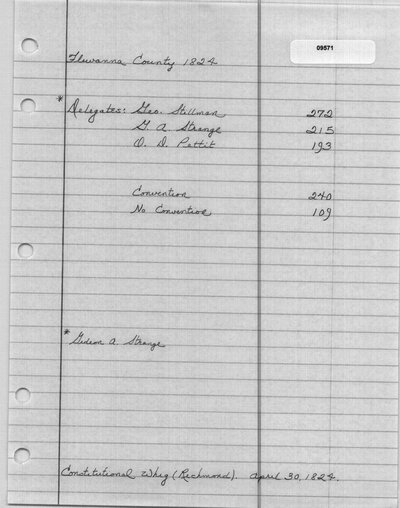 09571
Fluvanna County 1824
* Delegates: Geo. Stillman 272
G. A. Strange 215
O. D. Pettit 193
Convention 240
No Convention 109
* Gideon A. Strange
Constitutional Whig (Richmond). April 30, 1824.